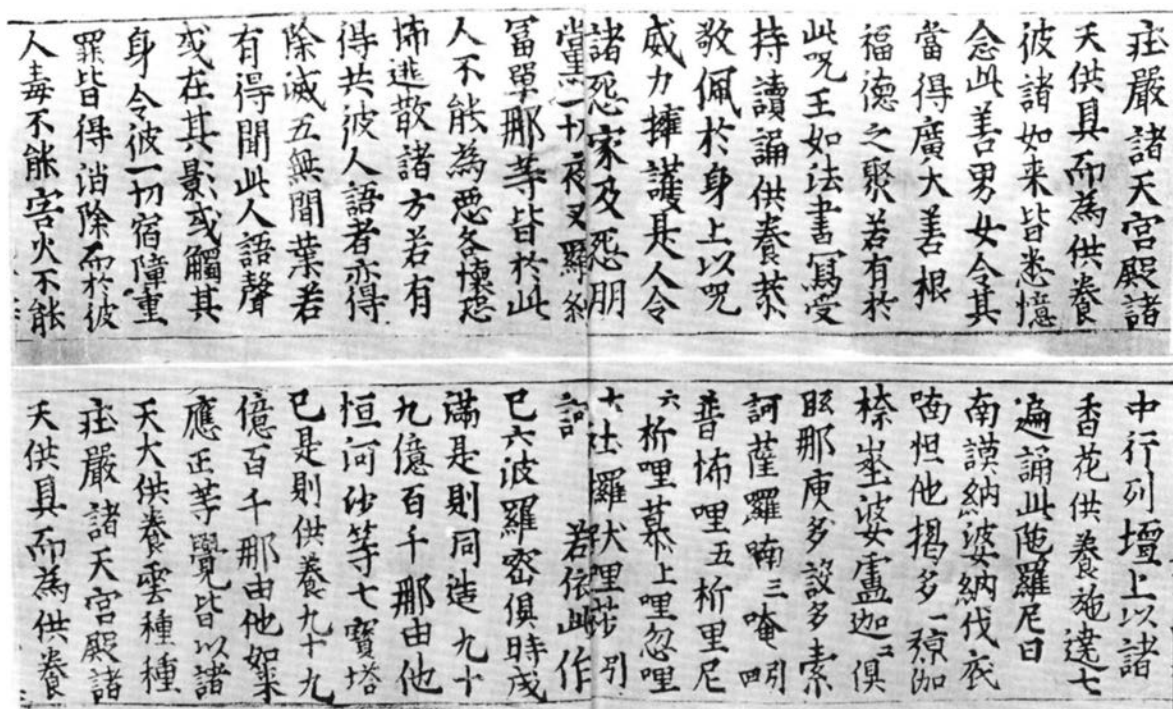 莊嚴諸天宮殿諸
天供具而為供養
彼諸如来皆悉憶
念此善男女令其
當得廣大善根
福德之聚若有於
此呪王如法書寫受
持讀誦供養恭
敬佩於身上以呪
威力擁護是人令
諸怨家及怨朋
黨一切夜叉羅剎
冨單那等皆於此
人不能為惡各懷恐
怖逃散諸方若有
得共彼人語者亦得
除滅五無間業若
有得聞此人語聲
或在其影或觸其
身令彼一切宿障重
罪皆得消除而於彼
人毒不能害火不能
中行列壇上以諸
香花供養施遶七
遍誦此陁羅尼曰
南謨納婆納伐底
喃怛他揭多一殑伽
捺塞婆盧迦二俱
胝那庾多設多索
訶薩羅喃三唵四引
普怖哩五折里尼
六折哩慕上哩忽哩
七社羅伏哩莎引
訶 若依此作
已六波羅密俱時成
滿是則同造九十
九億百千那由他
恒河沙等七寶塔
已是則供養九十九
億百千那由他如来
應正等覺皆以諸
天大供養雲種種
莊嚴諸天宮殿諸
天供具而為供養